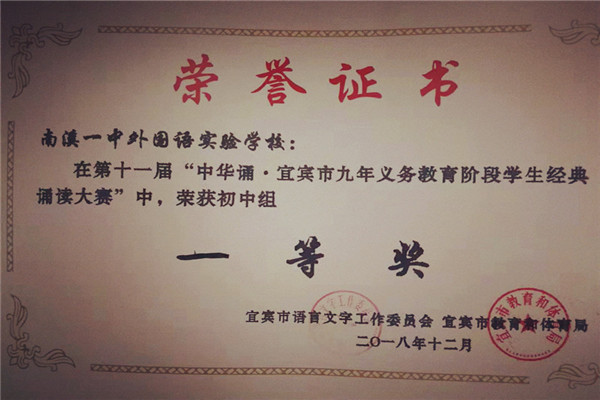 荣誉证书
南溪一中外国语实验学校：
在第十一届“中华诵·宜宾市九年义务教育阶段学生经典
诵读大赛”中，荣获初中组
一等奖
宜宾市语言文字工作委员会 宜宾市教育和体育局
二〇一八年十二月
宜宾市教育和体育局